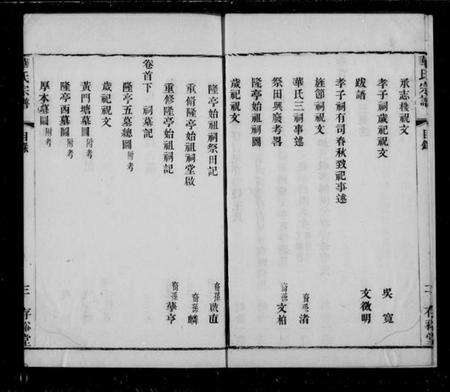 華氏宗譜 目錄 二 存裕堂
承志後祝文
孝子祠歲祀祝文
跋語 吳寬
文徵明
孝子祠有司春秋致祀事述
旌節祠祝文
華氏三祠事述 裔孫渚
祭田興廢考畧 裔孫文柏
隆亭始祖祠圖
歲祀祝文
隆亭始祖祠祭田記 裔孫啟直
重脩隆亭始祖祠堂啟 裔孫麟
重修隆亭始祖祠記 裔孫華亨
卷首下 祠墓記
隆亭五墓總圖 附考
歲祀祝文
黃門塘墓圖 附考
隆亭西墓圖 附考
厚本墓圖 附考
華氏宗譜 目錄 三 存裕堂